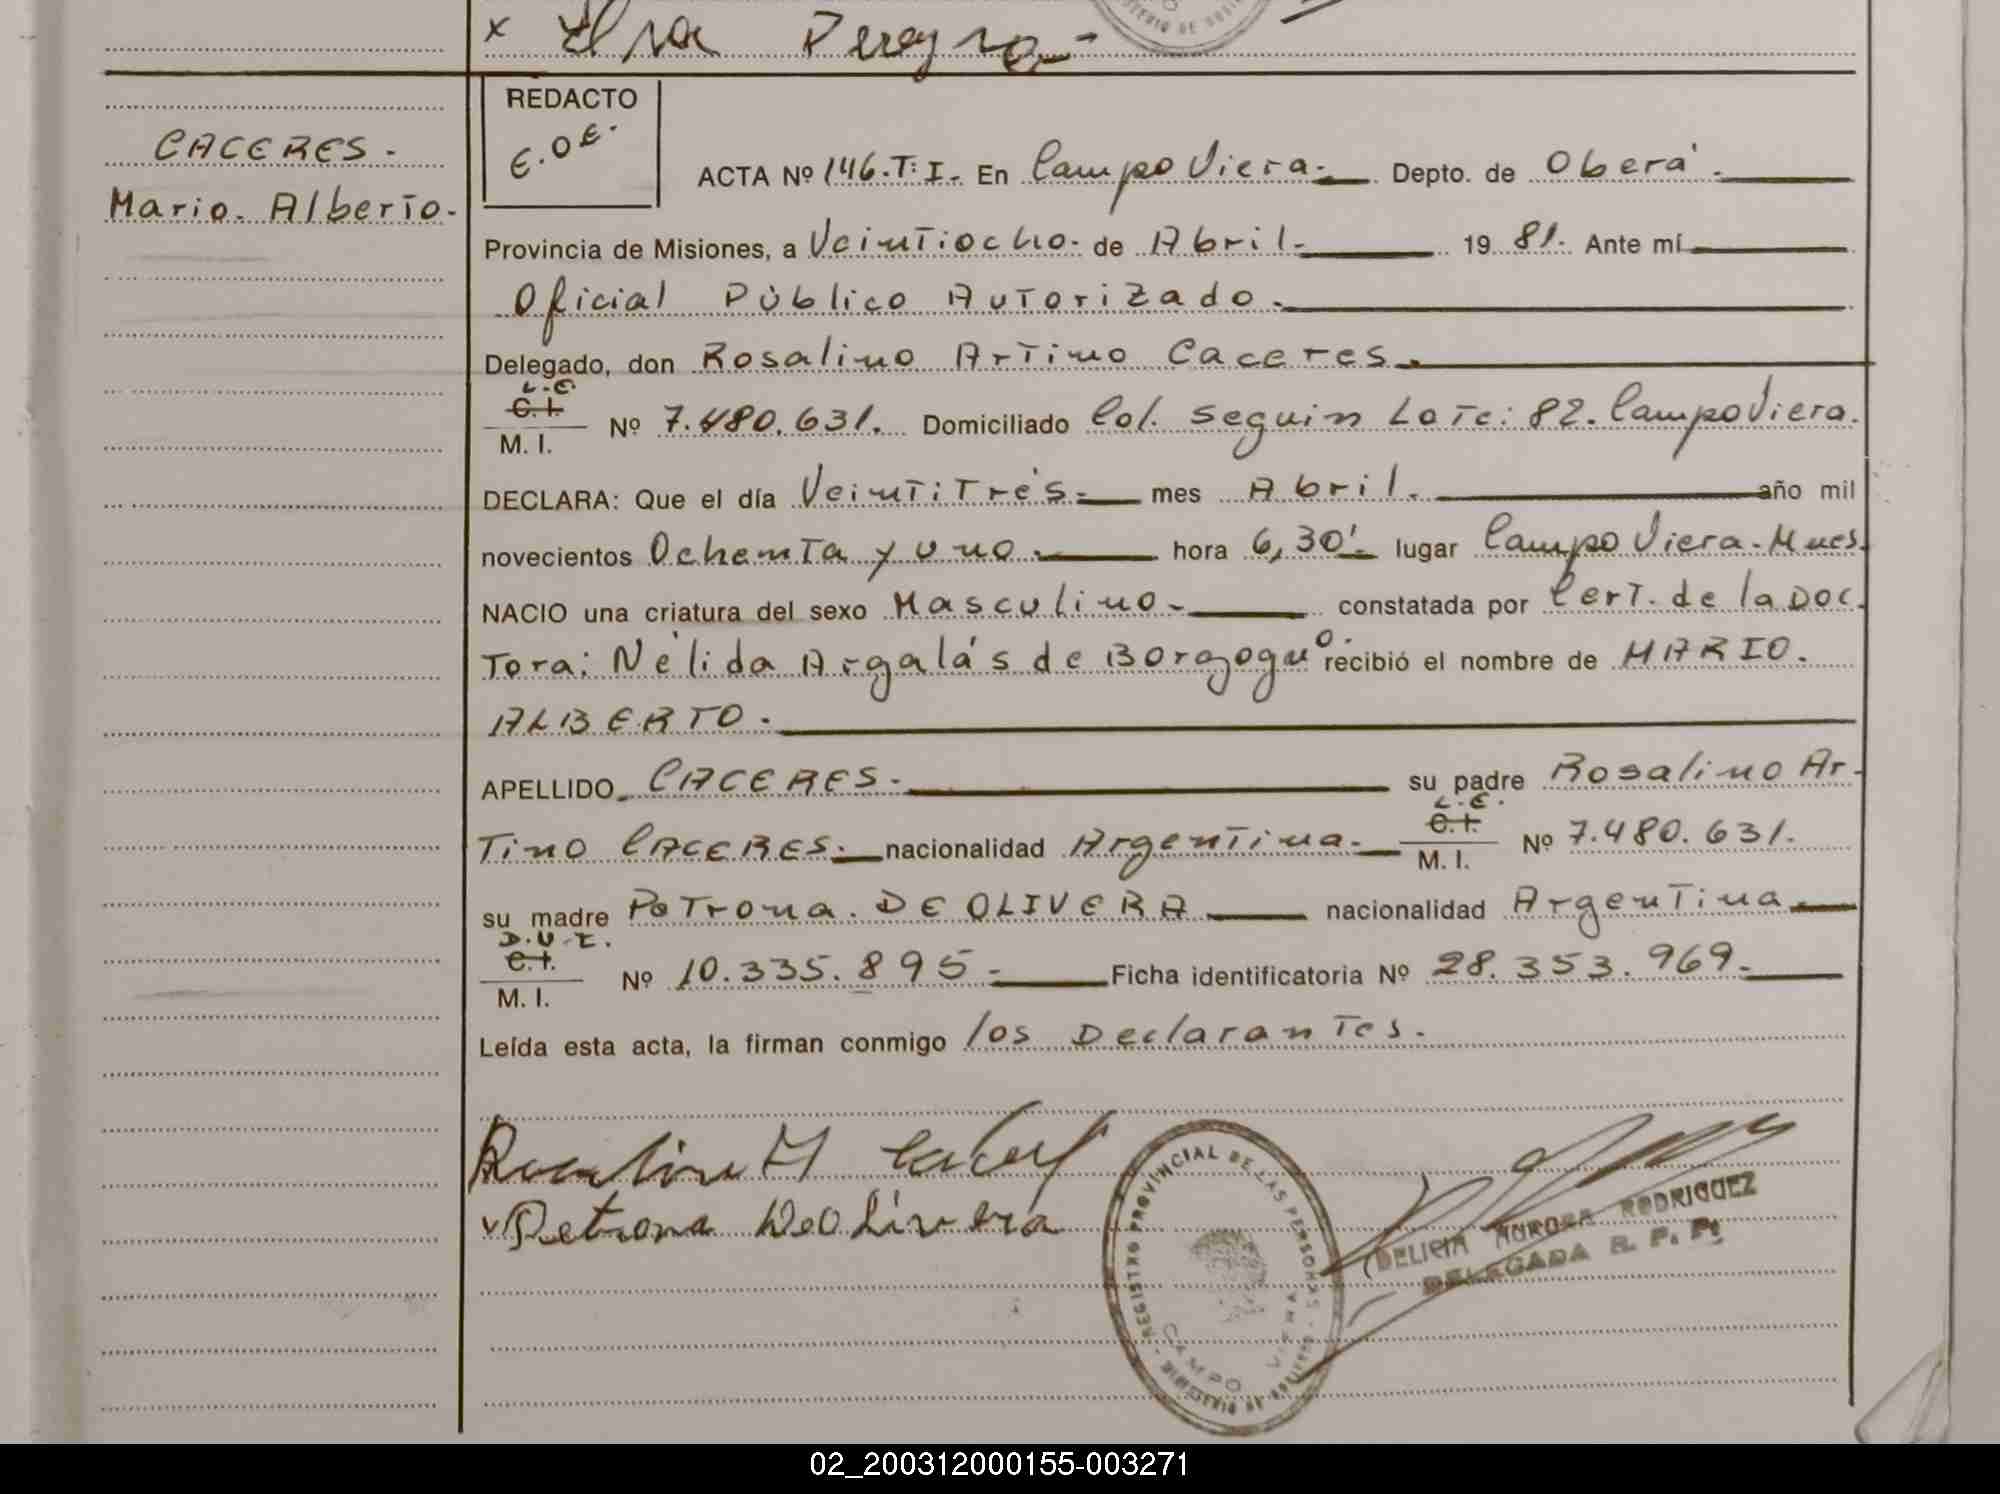 x Elsa Pereyra-
REDACTO
E.O.E.
CACERES-
Mario. Alberto-
ACTA Nº 146.T: I. En Campo Viera- Depto. de Oberá-
Provincia de Misiones, a Veintiocho- de Abril- 19 81. Ante mí
Oficial Público Autorizado-
Delegado, don Rosalino Artimo Caceres.
L.E.
C.I.
M. I.
Nº 7.480.631. Domiciliado Col. Seguin Lote: 82. Campo Viera.
DECLARA: Que el día Veintitrés- mes Abril. año mil
novecientos Ochenta y uno- hora 6,30'- lugar Campo Viera-Mnes.
NACIO una criatura del sexo Masculino- constatada por Cert. de la Doc-
Tora: Nélida Argalás de Borgogno. recibió el nombre de MARIO.
ALBERTO.
APELLIDO CACERES- su padre Rosalino Ar-
Timo CACERES- nacionalidad Argentina-
L.E.
C.I.
M. I.
Nº 7.480.631.
su madre Petrona. DE OLIVERA nacionalidad Argentina-
D.U.I.
C.I.
M. I.
Nº 10.335.895- Ficha identificatoria Nº 28.353.969-
Leída esta acta, la firman conmigo los Declarantes.
x Petrona Deolivera
REGISTRO PROVINCIAL DE LAS PERSONAS - MINISTERIO DE GOBIERNO -
CAMPO VIERA
DELICIA AURORA RODRIGUEZ
DELEGADA R. P. P.
02_200312000155-003271